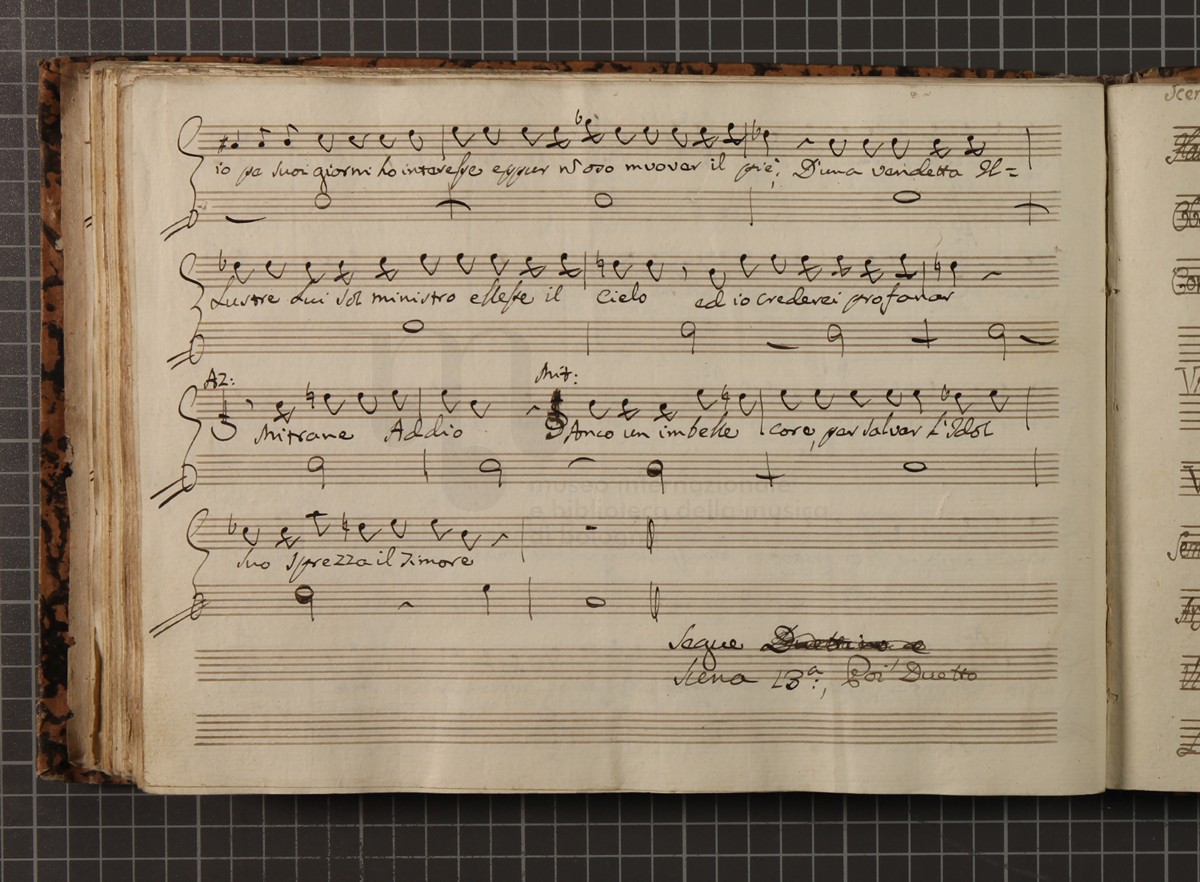 io pe suoi giorni ho interesse eppur nõ oso muover il piè; D'una vendetta Il=
Lustre Lui sol ministro elesse il Cielo ed io crederei profanar
Az: Mit:
Mitrane Addio Anco un imbelle core, per salvar L'Idol
museo internazionale
e biblioteca della musica
di bologna
suo sprezza il timore
Segue Duettino e
Scena 13ª:, Poi Duetto